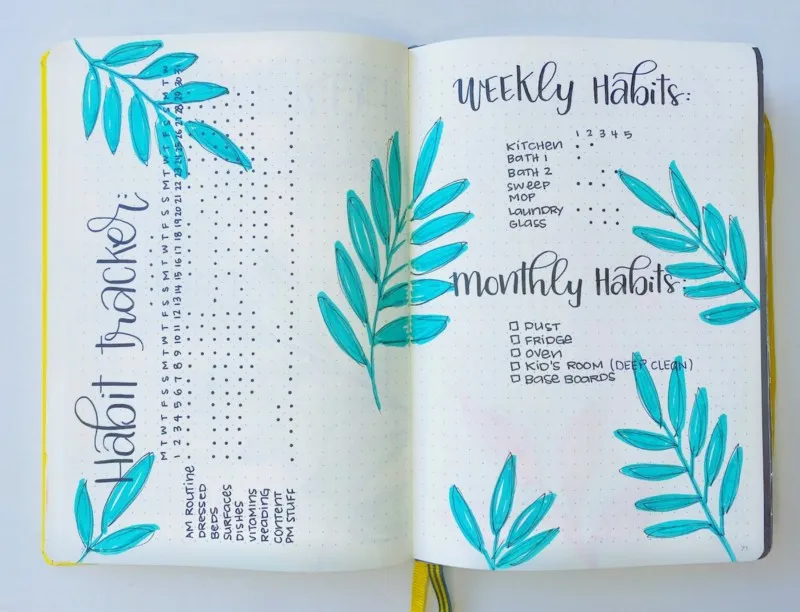 Habit tracker:
M T W T F S S M T W T F S S M T W T F S S M T W T F S S M T W
1 2 3 4 5 6 7 8 9 10 11 12 13 14 15 16 17 18 19 20 21 22 23 24 25 26 27 28 29 30 31
AM ROUTINE
DRESSED
BEDS
SURFACES
DISHES
VITAMINS
READING
CONTENT
PM STUFF
WEEKLY HABITS:
1 2 3 4 5
KITCHEN
BATH 1
BATH 2
SWEEP
MOP
LAUNDRY
GLASS
Monthly Habits:
DUST
FRIDGE
OVEN
KID'S ROOM (DEEP CLEAN)
BASE BOARDS